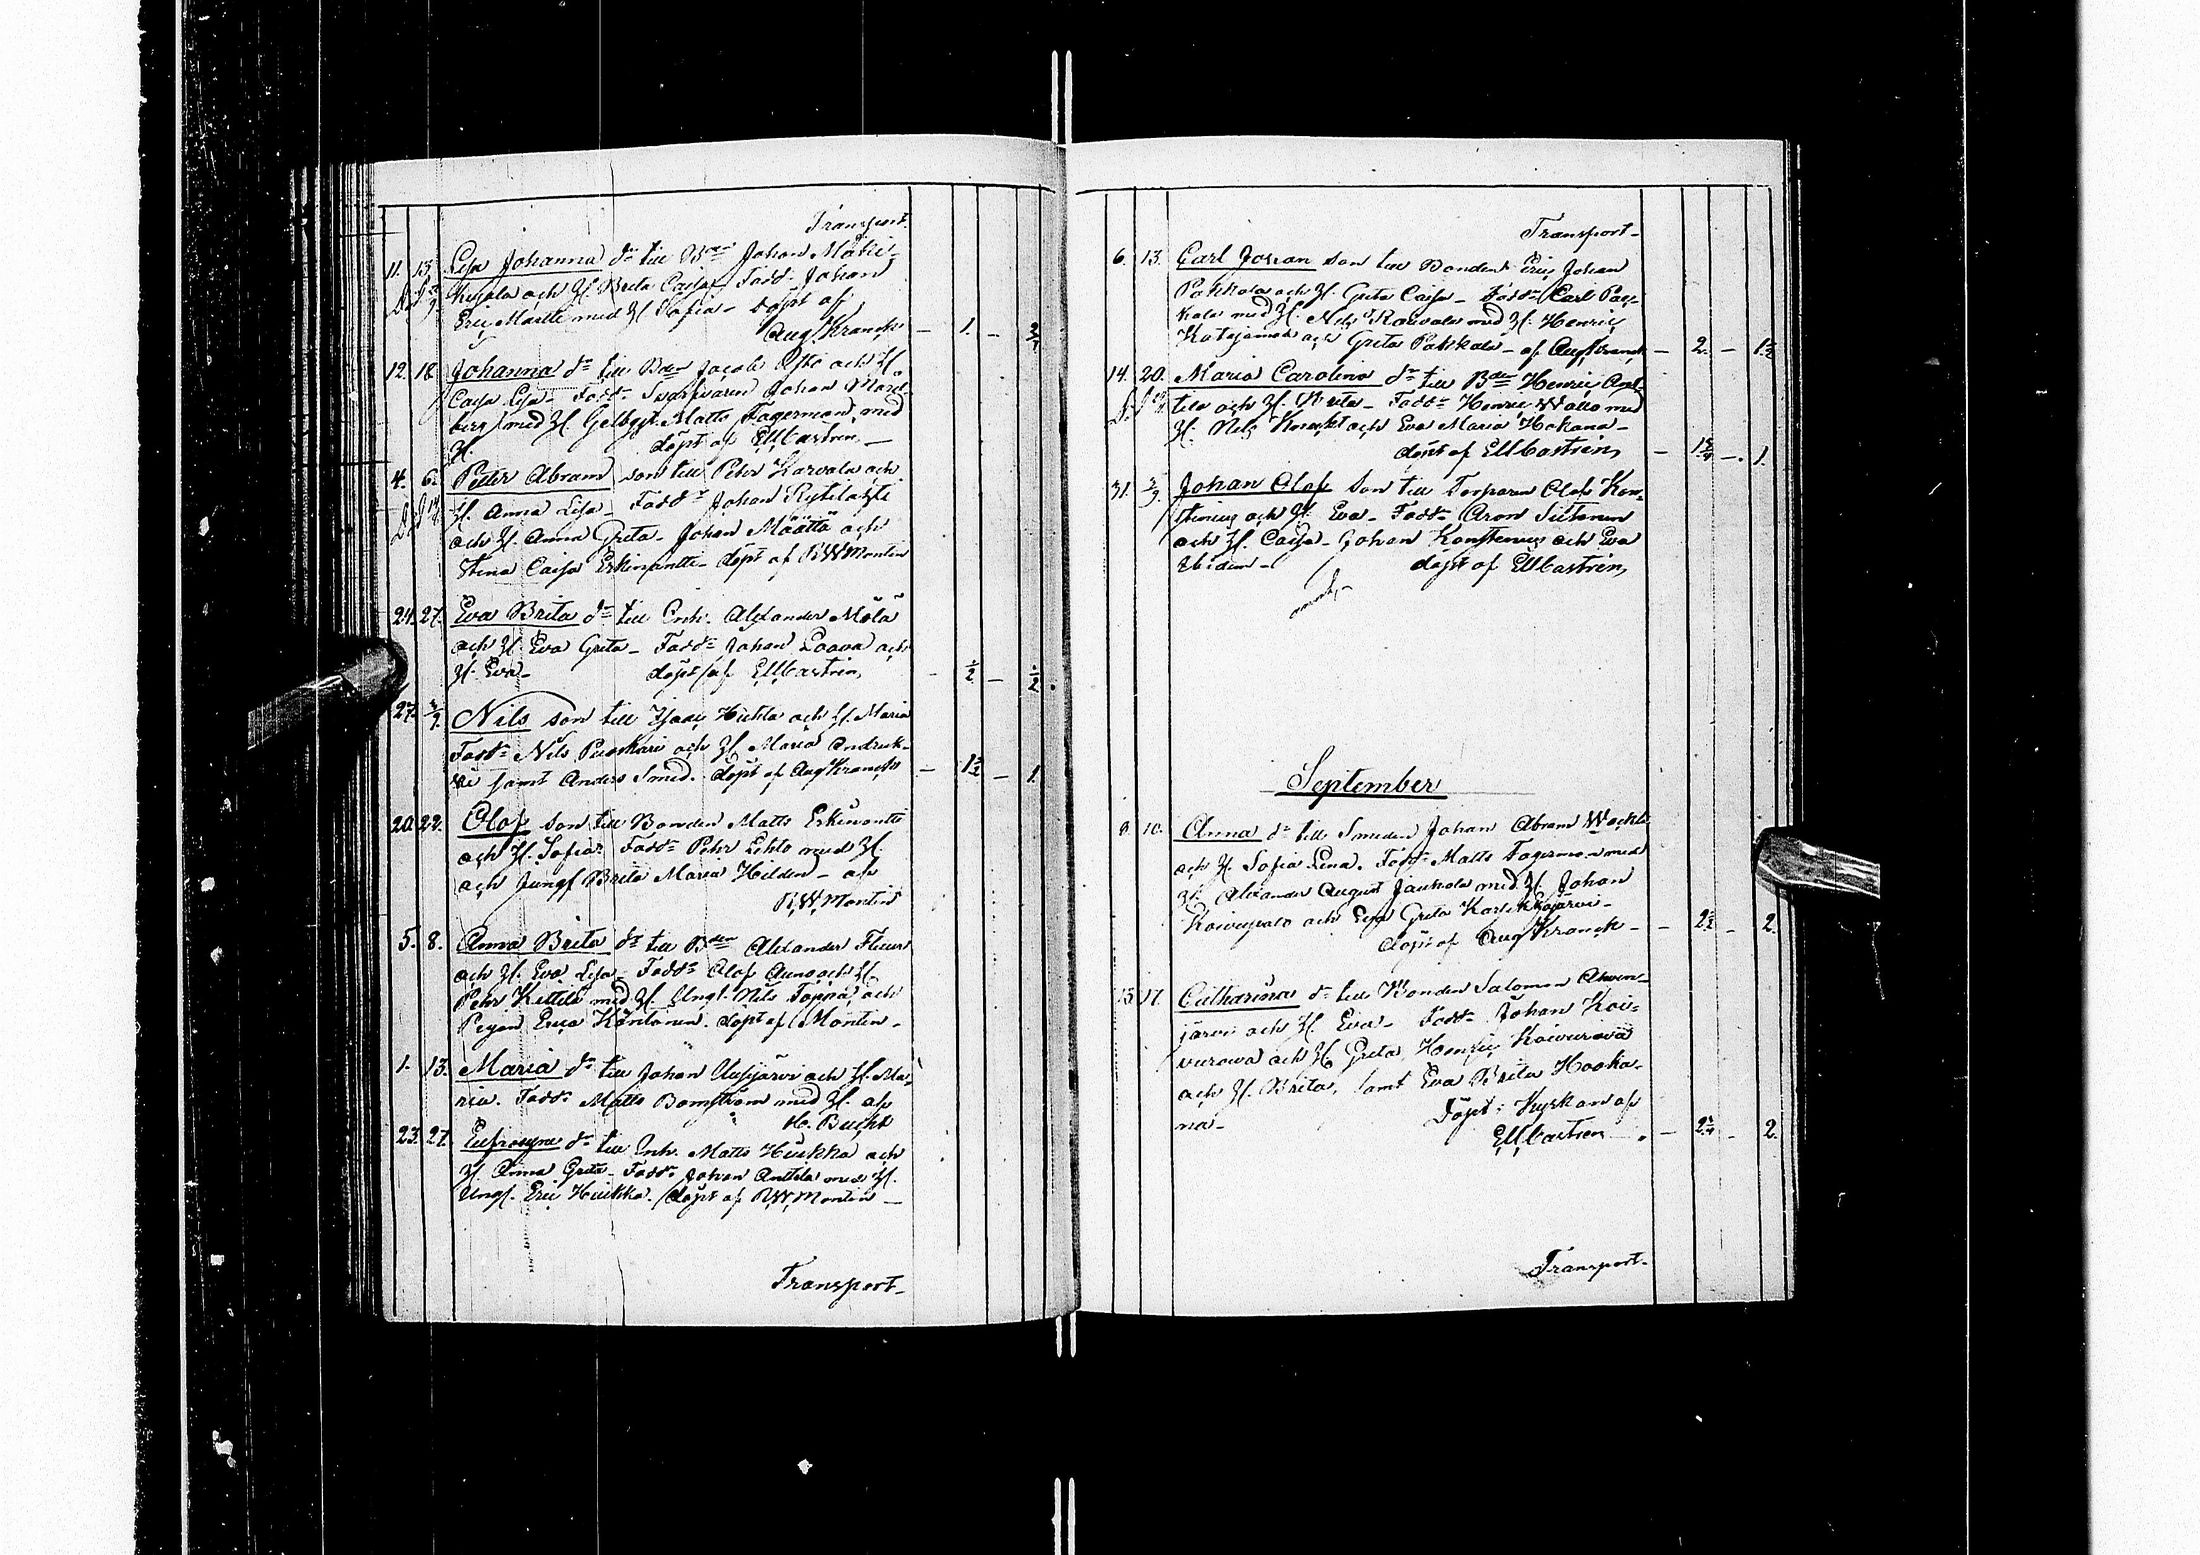 Transport.
11. 13. Lisa Johanna dr till Bden Johan Mäki-
kyjala och H. Brita Caisa Fadd. Johan
Eric Martti med H. Sofia - döpt af
Aug Kranck - 1. -
12. 18. Johanna dr till Bden Jacob och H.
Caisa Lisa - Fadd. Johan
berg med H. Gelbgjt. Matts Fagerman med
H. döpt af EMCastrén -
4. 6. Petter Abram son till Pehr Karvala och
H. Anna Lisa - Fadd. Johan Rytilahti
och H. Anna Greta - Johan Määttä och
Stina Caisa Erkinantti - döpt af RWMontin
24. 27. Eva Brita dr till Inh. Alexander Mölä
och H. Eva Greta - Fadd. Johan Laava och
H. Eva - döpt af EMCastrén - 1/2 - 1/2.
27. 3/9. Nils son till Isaac Hietila och H. Maria
Fadd. Nils Puoskari och H. Maria
samt Anders Smed. döpt af Aug Kranck - 1 1/2 - 1.
20. 22. Olof son till Bonden Matts Erkinantti
och H. Sofia Fadd. Pehr Lehto med H.
och Jungf Brita Maria Hilden - af
R.W. Montin
5. 8. Anna Brita dr till Bden Alexander
och H. Eva Lisa - Fadd. Olof Auno och H.
Pehr Kittilä med H. Ungl. Nils Toppa och
Pigan Erica Köntönen. döpt af Montin -
1. 13. Maria dr till Johan Ausjärvi och H. Ma-
ria. Fadd. Matts Bomström med H. af
H. Bucht
23. 27. Eufrosyne dr till Inh. Matts Hiukka och
H. Anna Greta - Fadd. Johan Anttila med H.
Ungl. Eric Hiukka. döpt af RWMontin -
Transport -
Transport -
6. 13. Carl Johan son till Bonden Eric Johan
Pakkala och H. Greta Caisa - Fadd. Carl Pac-
kala med H. Nils Rauvala med H. Henric
Katajamaa och Greta Pakkala - af Aug Kranck - 2. - 1 1/2
14. 20. Maria Carolina dr till Bden Henric Ant-
tila och H. Brita - Fadd. Henric Wallo med
H. Nils Knecht och Eva Maria Hokana -
döpt af EMCastrén, - 1 3/4 - 1.
31. 3/9. Johan Olof son till Torparen Olof Kon-
stenius och H. Eva - Fadd. Aron Siitonen
och H. Caisa - Johan Konstenius och Eva
- döpt af EMCastrén,
September
8. 10. Anna dr till Smeden Johan Abram
och H. Sofia Lena. Fadd. Matts Fagerman med
H. Alexander August Jaukola med H. Johan
och Lisa Greta
döpt af Aug Kranck - - 2 1/2 - 2.
15. 17. Catharina dr till Bonden Salomon Ahven-
järvi och H. Eva - Fadd. Johan Koi-
vurowa och H. Greta, Henric Koivurova
och H. Brita, samt Eva Brita Hooka-
na - Döpt i Kyrkan af
EMCastren - 2 3/4 - 2.
Transport -